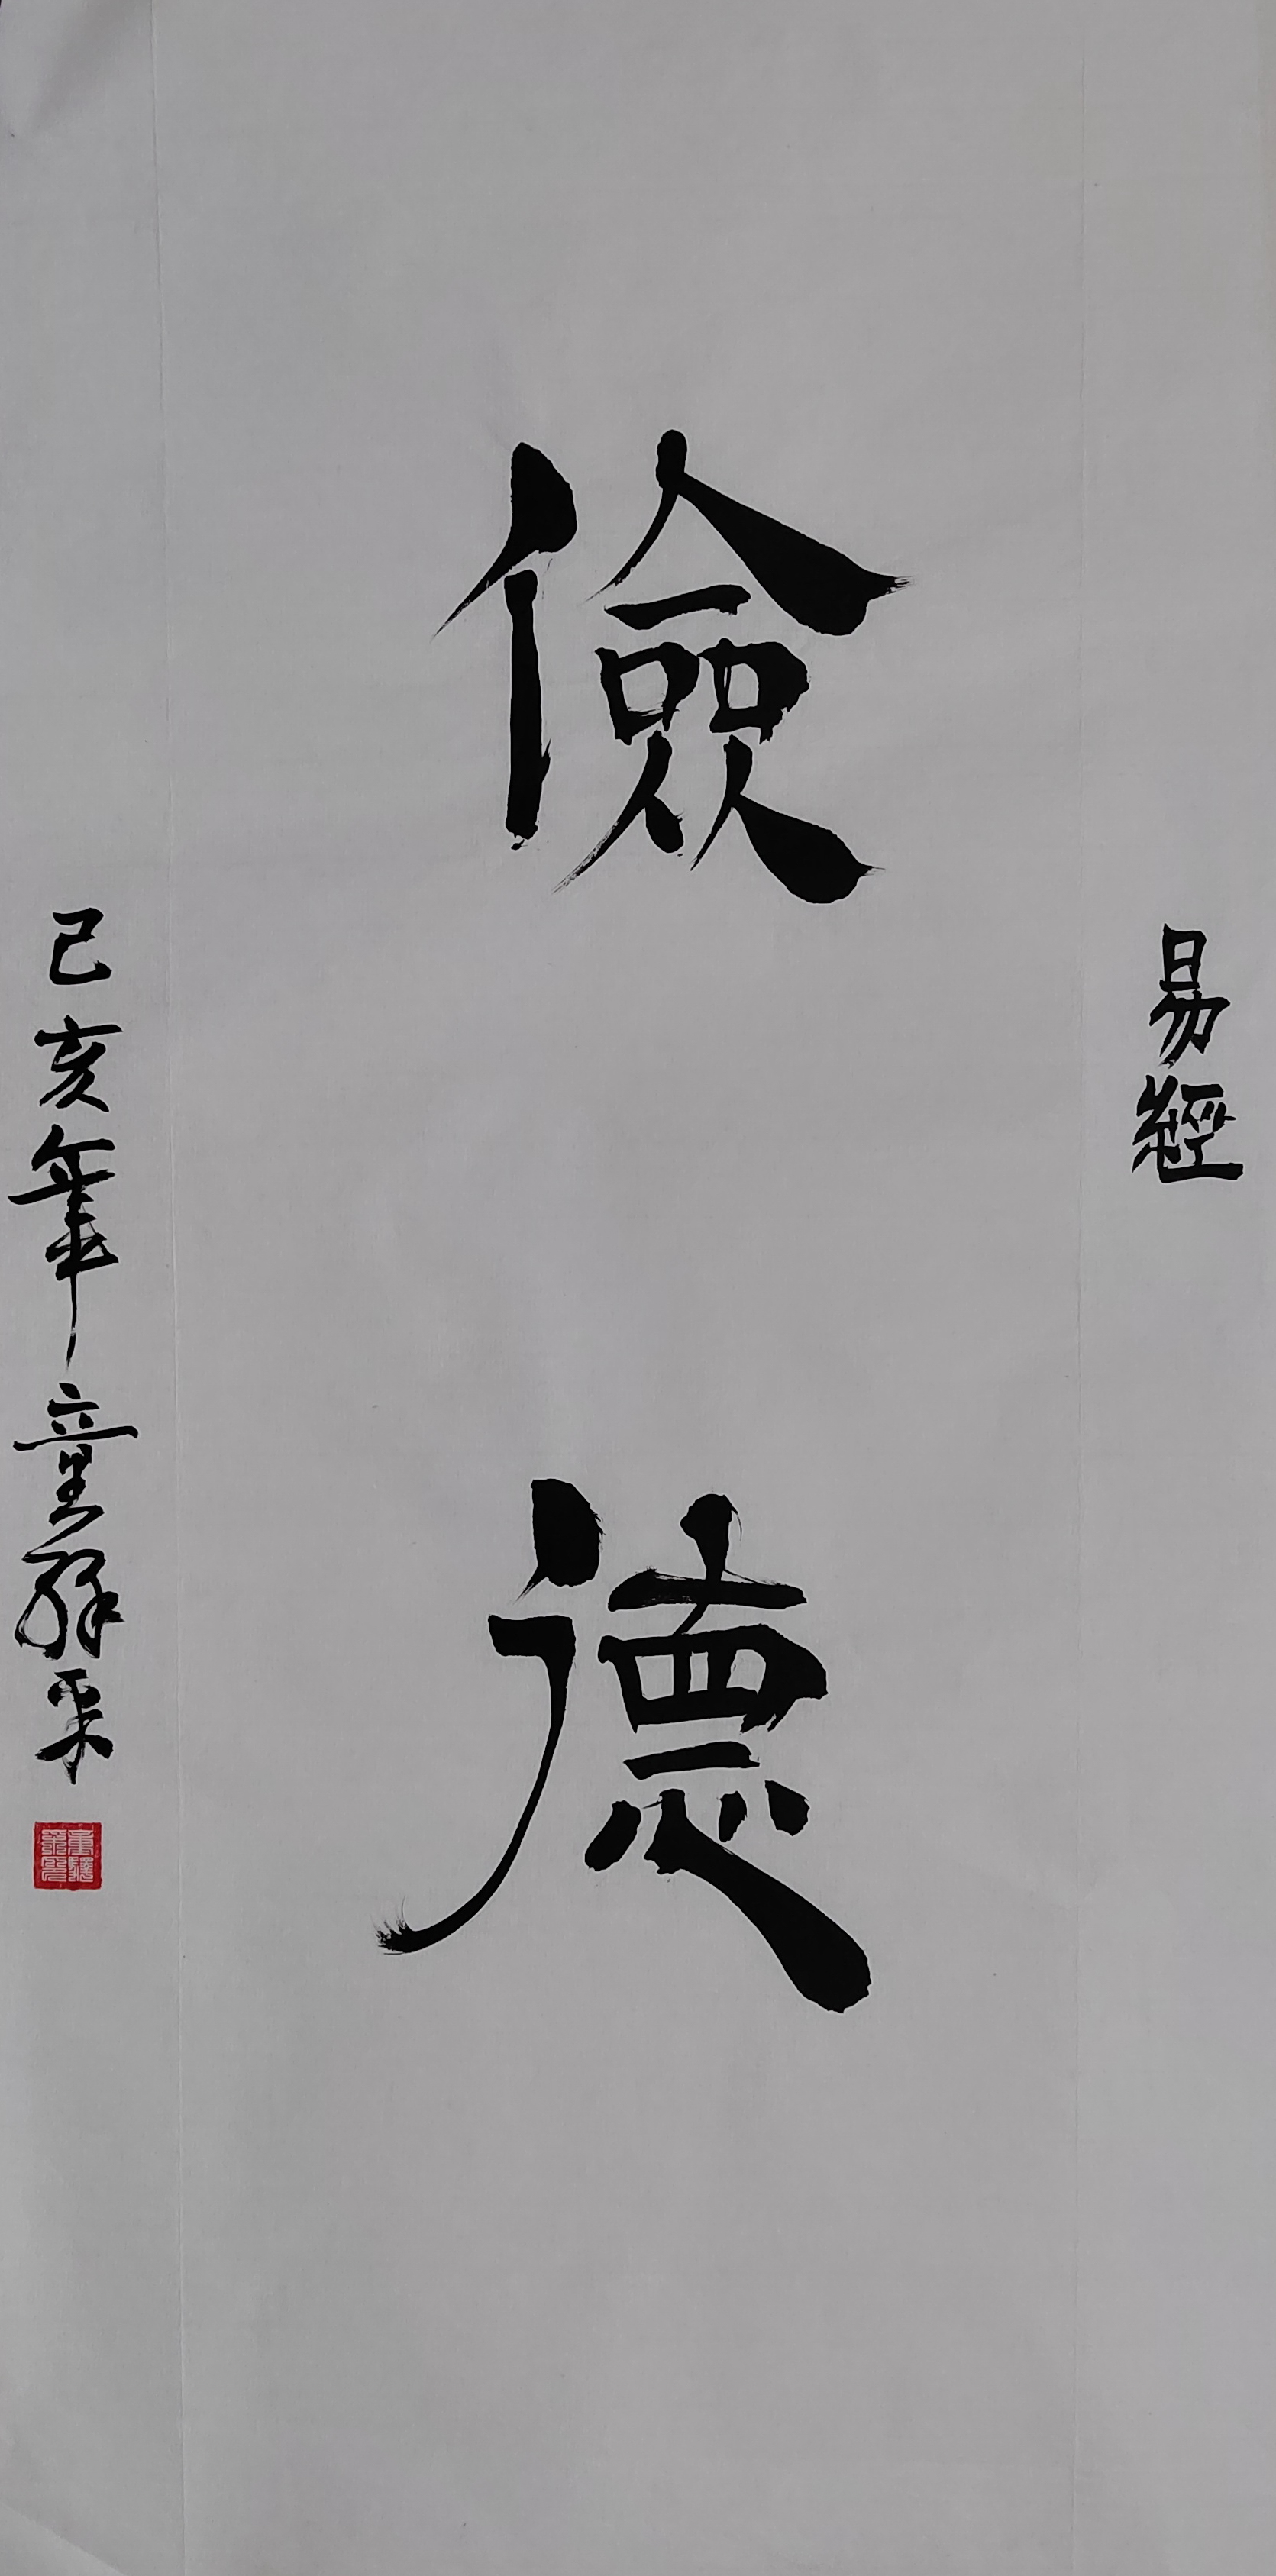 易經
儉德
己亥年童驿采